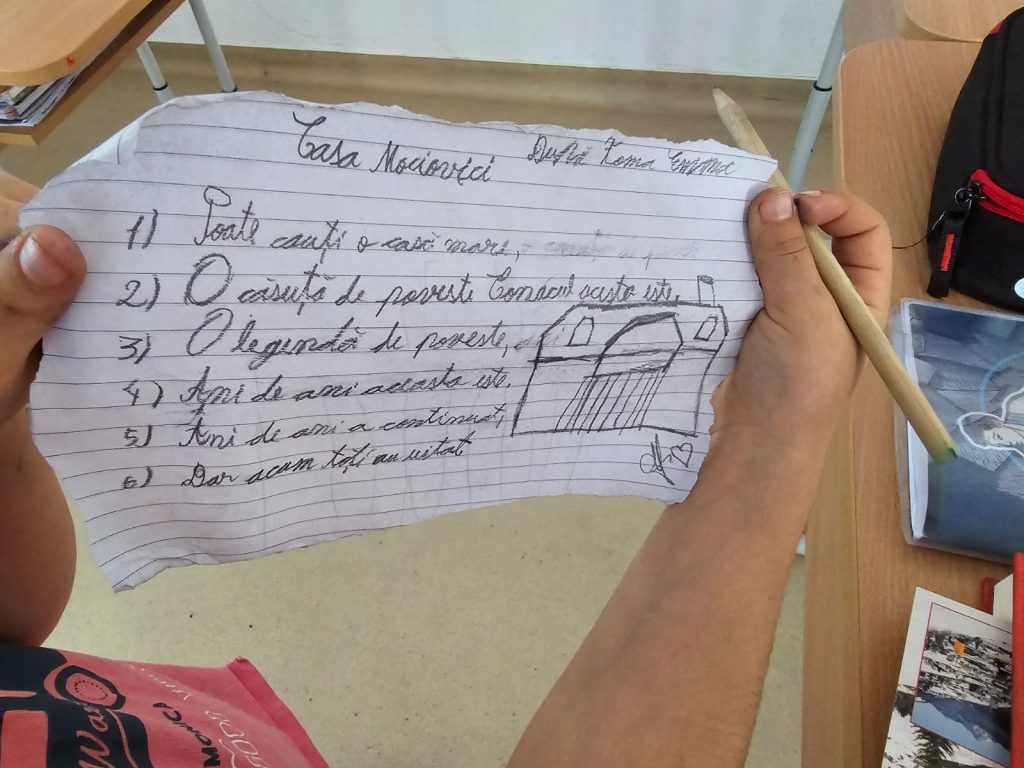 Casa Mociovici
După Toma Emma
1) Poate cauți o casă mare,
2) O căsuță de poveste Conacul acesta este.
3) O legendă de poveste,
4) Ani de ani aceasta este.
5) Ani de ani a continuat,
6) Dar acum toți au uitat
MONICA